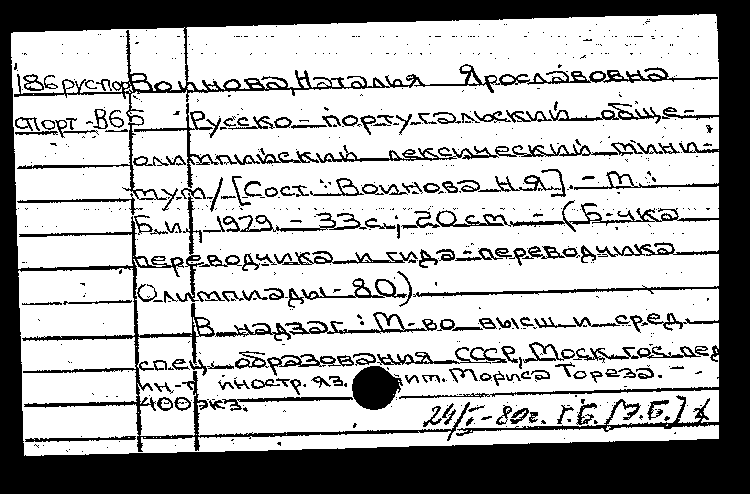 186руспор Воинова, Наталия Ярославовна
спорт-В65 Русско-португальский обще-
олимпийский лексический мини-
мум / [Сост.: Воинова Н.Я]. - М.:
Б.и., 1979. - 33с.; 20см. - (Б-чка
переводчика и гида-переводчика
Олимпиады-80).
В надзаг.: М-во высш и сред.
спец. образования СССР, Моск. гос. пед
ин-т иностр. яз. им. Мориса Тореза. -
400экз.
24/I-80г. Г.Б. [Э.Б.]